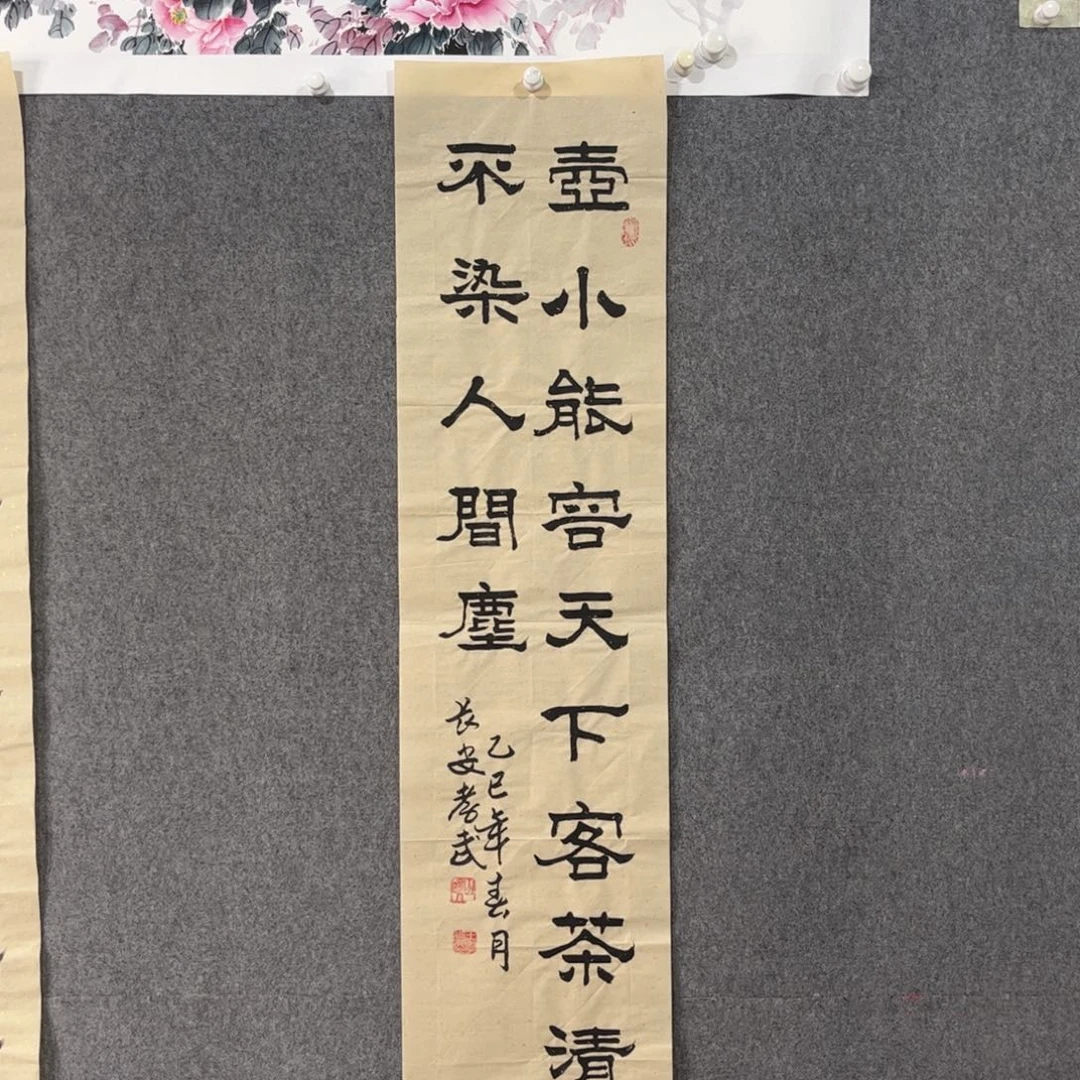 壺小能容天下客茶清
不染人間塵
乙巳年春月
長安孝武